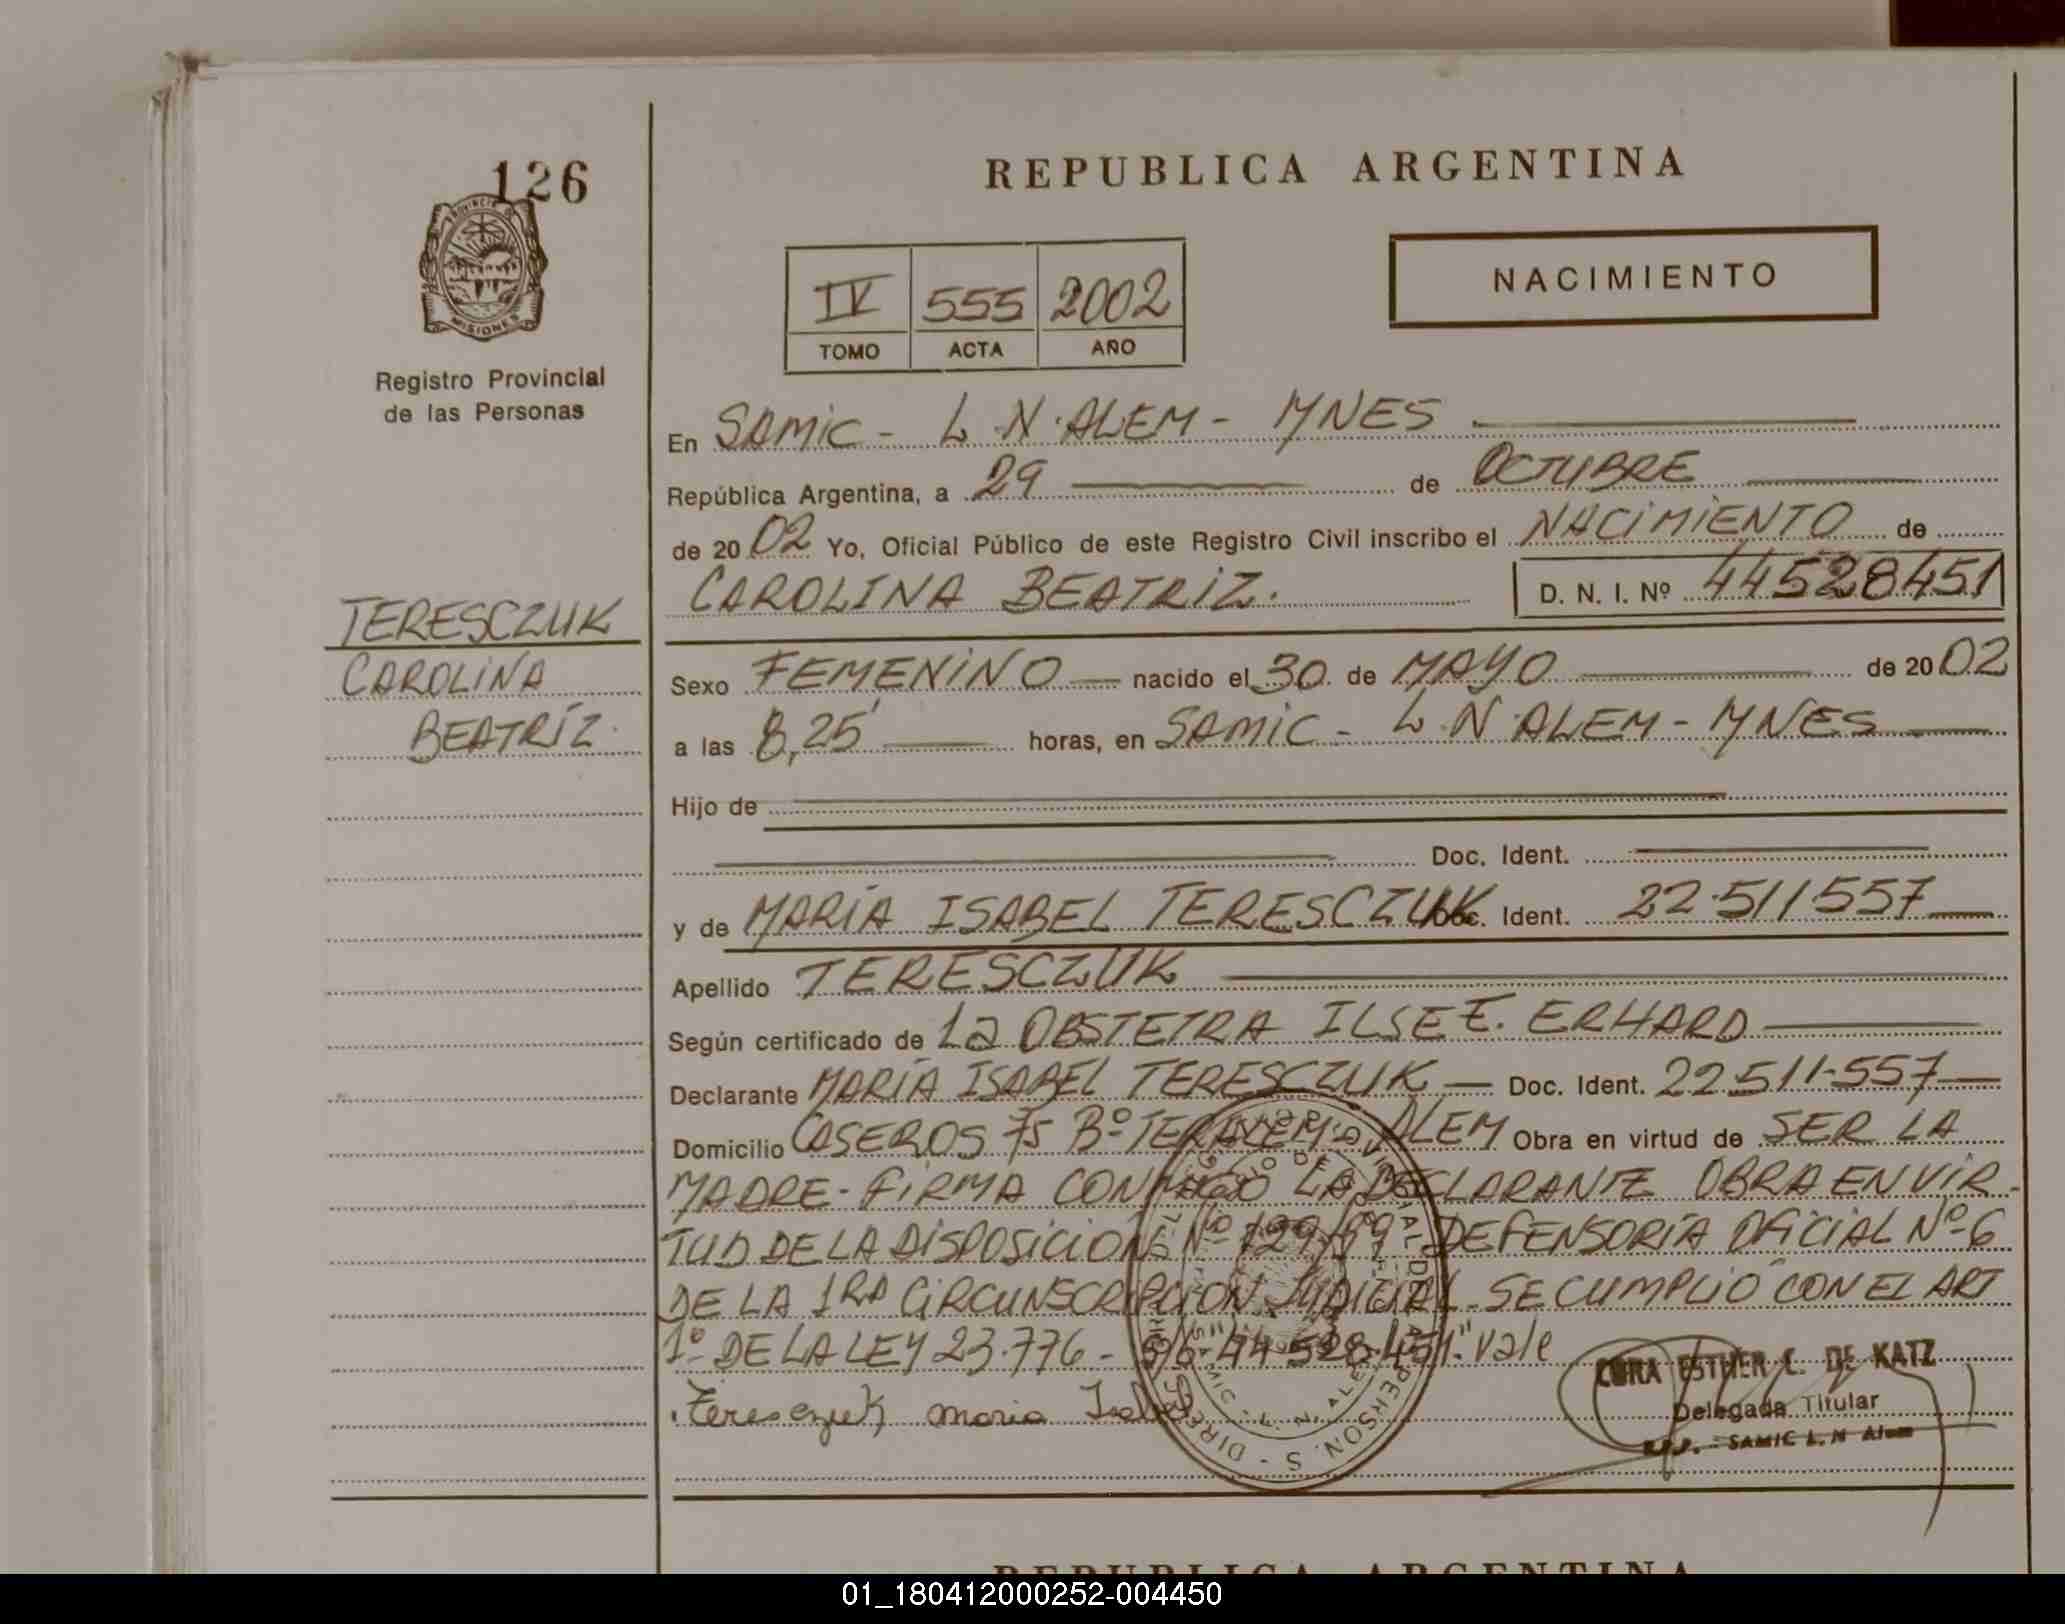 126
PROVINCIA DE
MISIONES
Registro Provincial
de las Personas
TERESCZUK
CAROLINA
BEATRÍZ.
REPUBLICA ARGENTINA
IV 555 2002
TOMO ACTA AÑO
NACIMIENTO
En SAMIC - L.N. ALEM - MNES
República Argentina, a 29 de OCTUBRE
de 20 02 Yo, Oficial Público de este Registro Civil inscribo el NACIMIENTO de
CAROLINA BEATRIZ. D. N. I. Nº 44528451
Sexo FEMENINO nacido el 30 de MAYO de 20 02
a las 8,25' horas, en SAMIC - L.N. ALEM - MNES
Hijo de
Doc. Ident.
y de MARÍA ISABEL TERESCZUK Doc. Ident. 22.511.557
Apellido TERESCZUK
Según certificado de La OBSTETRA ILSE E. ERHARD
Declarante MARÍA ISABEL TERESCZUK Doc. Ident. 22.511.557
Domicilio CASEROS 75 Bº ALEM Obra en virtud de SER LA
MADRE - FIRMA CONMIGO LA DECLARANTE OBRA EN VIR-
TUD DE LA DISPOSICIÓN Nº 129/99 - DEFENSORÍA OFICIAL Nº 6
DE LA 1RA CIRCUNSCRIPCIÓN JUDICIAL - SE CUMPLIÓ CON EL ART
1º DE LA LEY 23.776 - S/b "44528451" Vale
Teresczuk Maria Isabel
CORA ESTHER C. DE KATZ
Delegada Titular
R.P.P. - SAMIC L. N Alem
REPUBLICA ARGENTINA
01_180412000252-004450